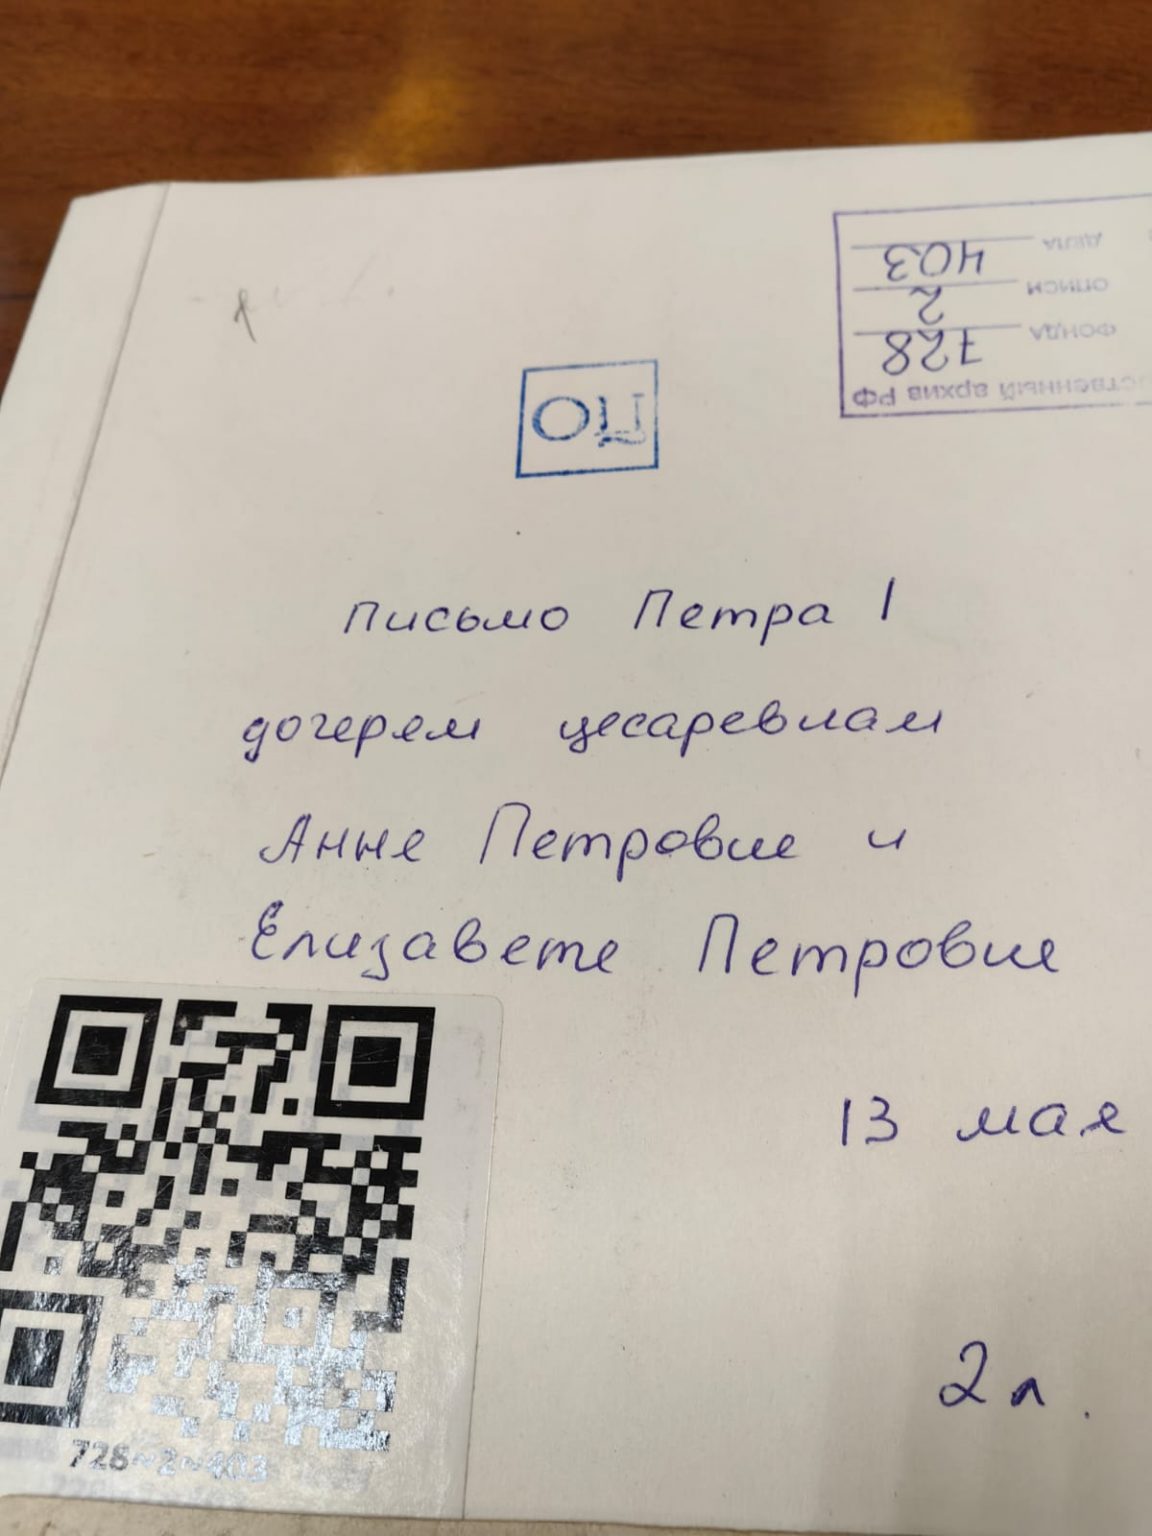 дела 403
описи 2
фонда 728
ственный архив РФ
ПО
письмо Петра I
дочерям цесаревнам
Анне Петровне и
Елизавете Петровне
13 мая
2 л.
728~2~403